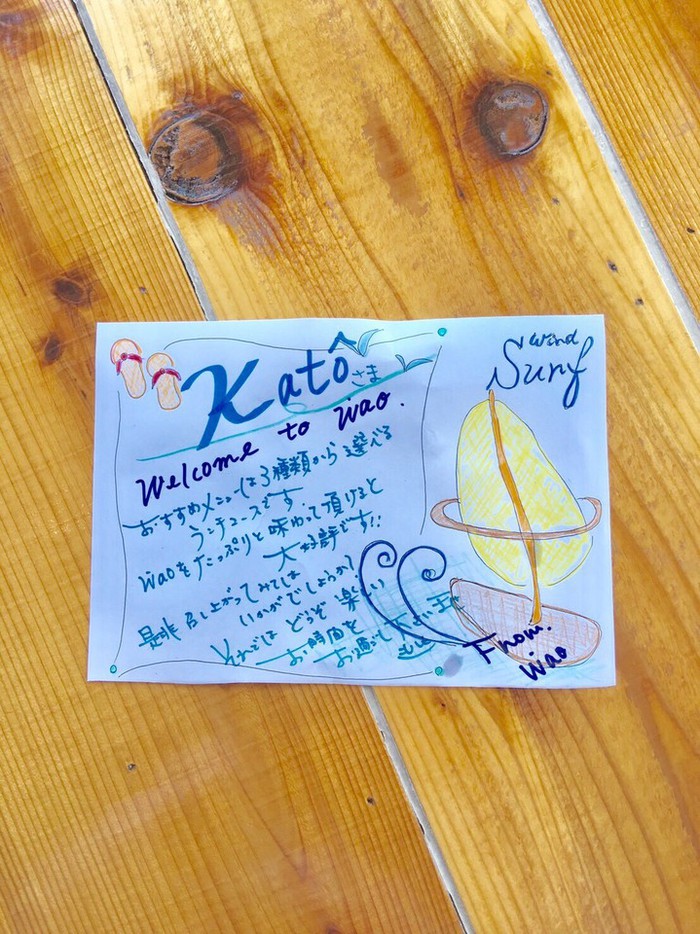 Katôさま
Welcome to wao.
おすすめメニューは3種類から選べる
ランチコースです
waoをたっぷりと味わって頂けると
大好評です!!
是非召し上がってみては
いかがでしょうか?
それでは どうぞ 楽しい
お時間を
お過ごし下さいませ
Wind
Surf
From.
wao